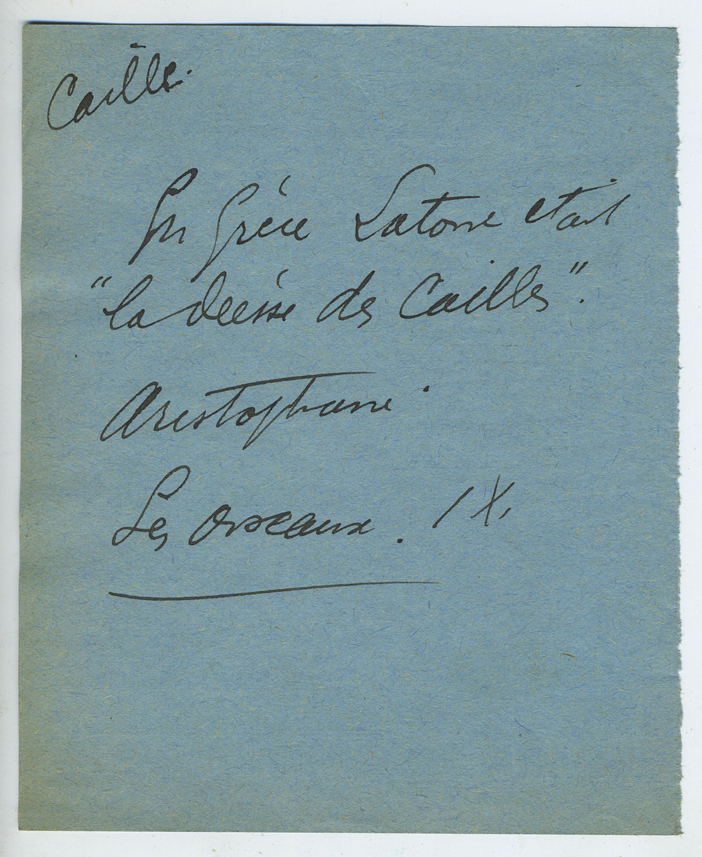 Caille.
En Grèce Latone était
"la déesse des Cailles".
Aristophane.
Les oiseaux. IX.